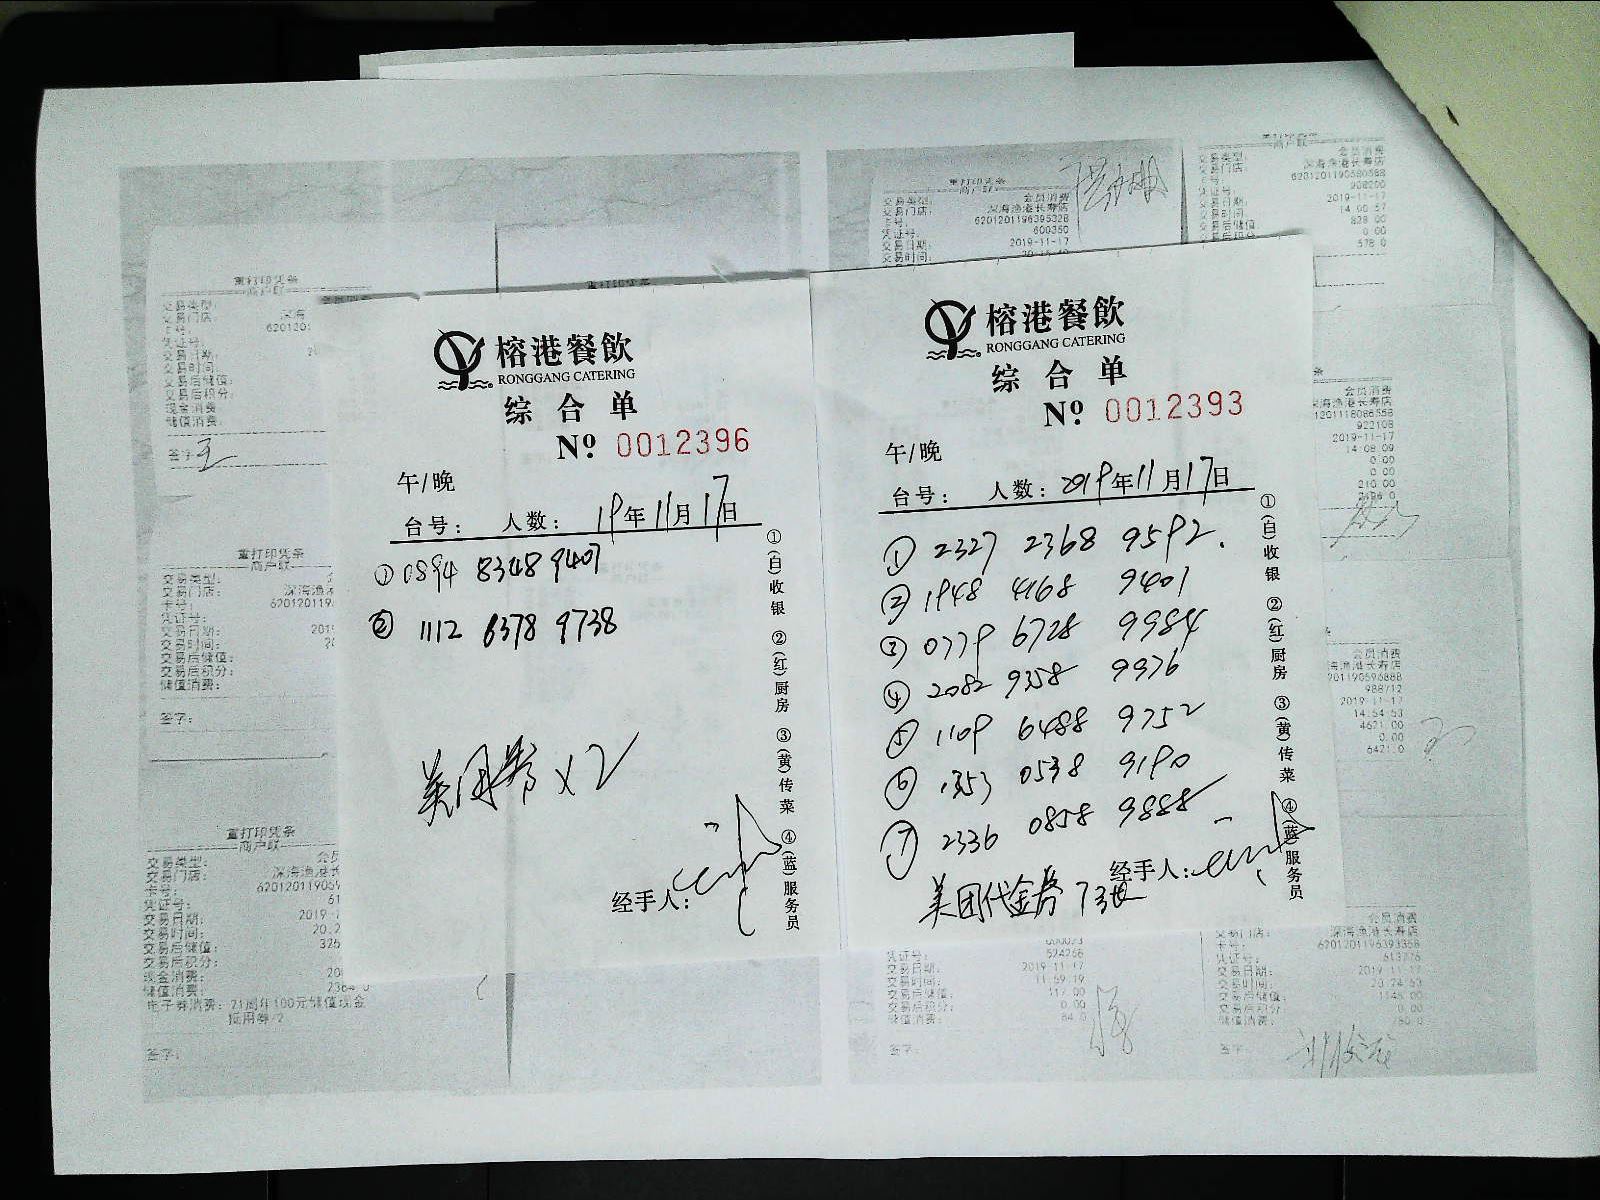 榕港餐飲
RONGGANG CATERING
综合单
Nº 0012396
午/晚
台号: 人数: 19年11月17日
①0894 8348 9407
② 1112 6378 9738
美团券×2
经手人:
①(白)收银 ②(红)厨房 ③(黄)传菜 ④(蓝)服务员
榕港餐飲
RONGGANG CATERING
综合单
Nº 0012393
午/晚
台号: 人数: 2019年11月17日
① 2327 2368 9592.
② 1948 4168 9401
③ 0779 6728 9984
④ 2082 9358 9976
⑤ 1109 6488 9752
⑥ 1353 0538 9190
⑦ 2336 0858 9888
经手人:
美团代金券 73张
①(白)收银 ②(红)厨房 ③(黄)传菜 ④(蓝)服务员
重打印凭条
商户联
交易类型:
交易门店: 深海
卡号: 620120
凭证号:
交易日期:
交易时间:
交易后储值:
交易后积分:
现金消费
储值消费:
签字: 王
重打印凭条
商户联
交易类型:
交易门店: 深海渔
卡号: 6201201190
凭证号:
交易日期: 201
交易时间:
交易后储值:
交易后积分:
储值消费:
签字:
重打印凭条
商户联
交易类型:
交易门店: 深海渔港长
卡号:
凭证号:
交易日期: 2019-1
交易时间: 20:2
交易后储值: 326
交易后积分:
现金消费:
储值消费:
电子券消费: 21周年100元储值现金
抵用券/2
签字:
重打印凭条
商户联
交易类型: 会员消费
交易门店: 深海渔港长寿店
卡号: 6201201196395328
凭证号: 600350
交易日期: 2019-11-17
交易时间:
商户联
交易类型: 会员消费
交易门店: 深海渔港长寿店
卡号: 6201201190580588
凭证号: 908200
交易日期: 2019-11-17
交易时间: 14:00:57
交易后储值: 828.00
交易后积分: 0.00
578.0
会员消费
深海渔港长寿店
201118086558
922108
2019-11-17
14:08:09
0.00
0.00
210.00
会员消费
海渔港长寿店
201190596888
988712
2019-11-17
14:54:53
4621.00
0.00
6421.0
凭证号: 524266
交易日期: 2019-11-17
交易时间: 11:59:19
交易后储值: 117.00
交易后积分: 0.00
储值消费: 84.0
签字:
会员消费
交易门店: 深海渔港长寿店
卡号: 6201201196393358
凭证号: 613776
交易日期: 2019-11-17
交易时间: 20:24:50
交易后储值: 1145.00
交易后积分: 0.00
储值消费: 80.0
签字: